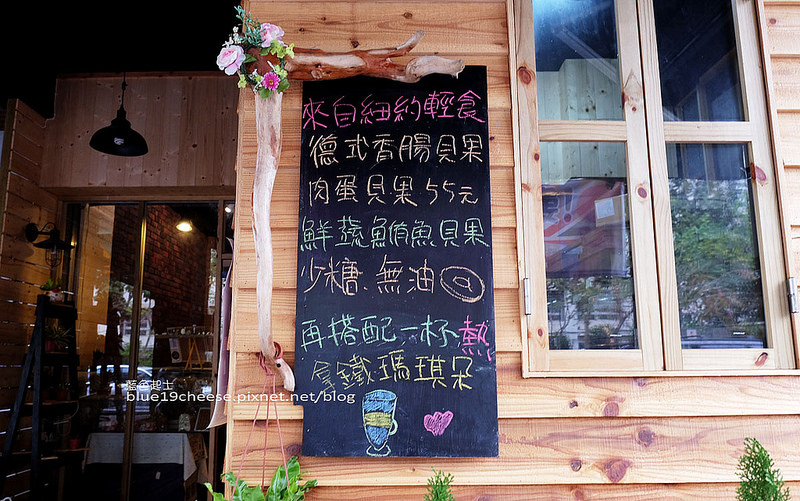 來自紐約輕食
德式香腸貝果
肉蛋貝果55元
鮮蔬鮪魚貝果
少糖、無油
再搭配一杯熱
拿鐵瑪琪朵
藍色起士
blue19cheese.pixnet.net/blog